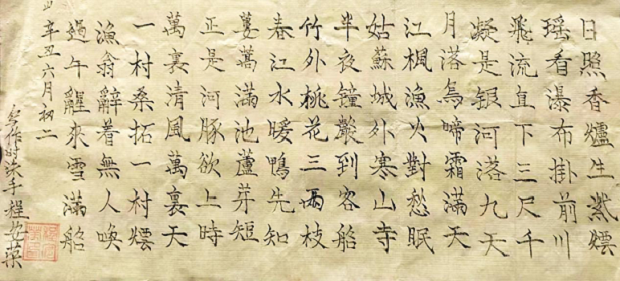 日照香爐生紫煙
瑶看瀑布掛前川
飛流直下三尺千
凝是银河落九天
月落烏啼霜滿天
江楓漁火對愁眠
姑蘇城外寒山寺
半夜鐘聲到客船
竹外桃花三兩枝
春江水暖鴨先知
蔞蒿滿池蘆芽短
正是河豚欲上時
萬裏清風萬裏天
一村桑拓一村煙
漁翁辭着無人喚
過午醒來雪滿船
辛丑六月初二